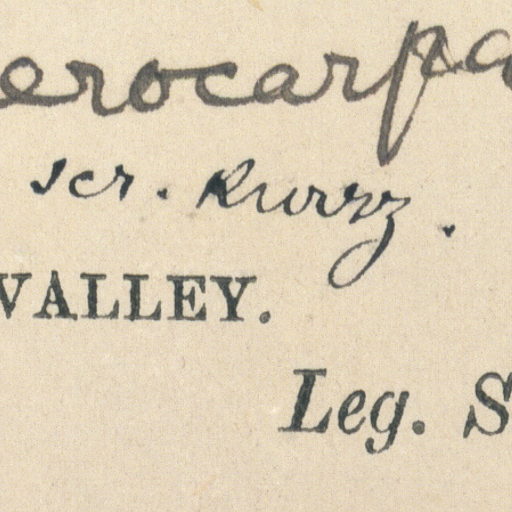 erocarpa
scr. Kurzz.
VALLEY.
Leg. S